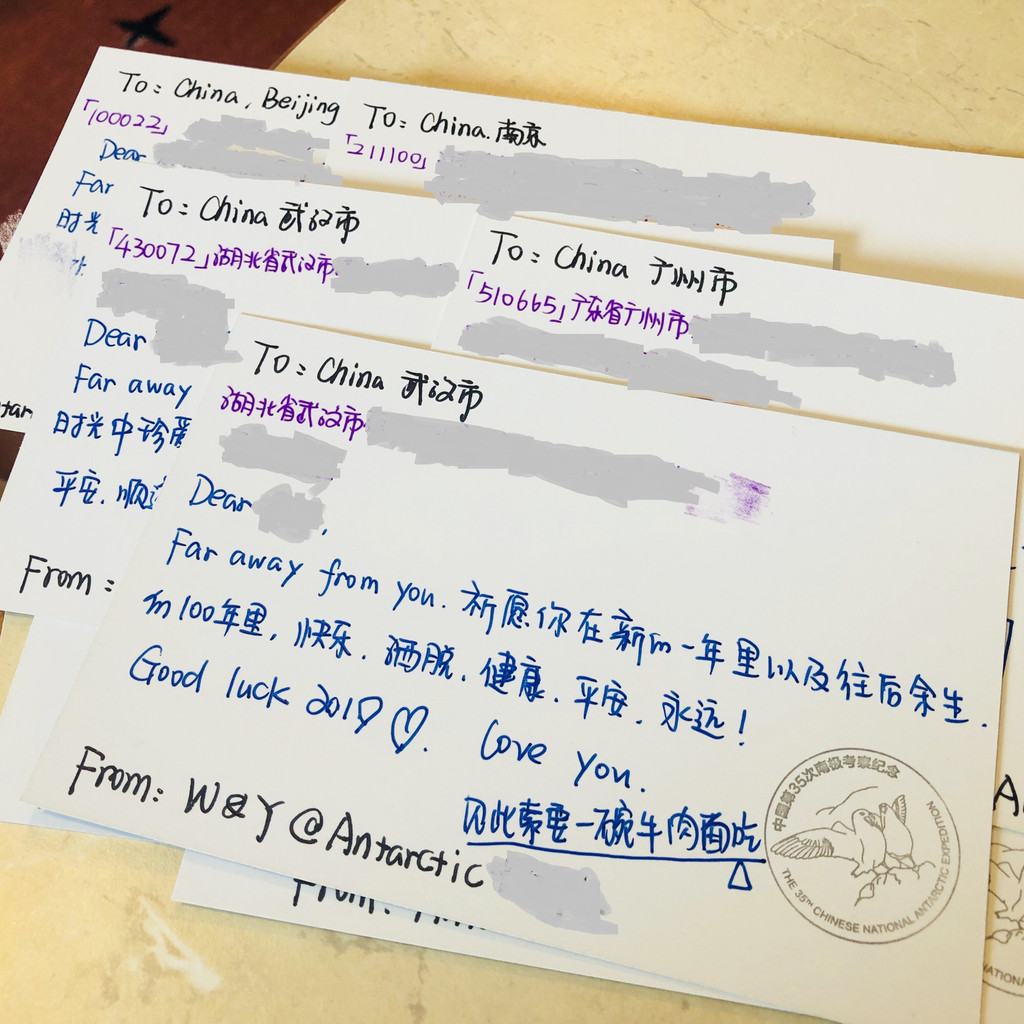 To: China, Beijing
「100022」
Dear
Far
时光
To: China. 南京
「211100」
To: China 武汉市
「430072」湖北省武汉市
Dear
Far away
时光中珍爱
平安. 顺遂
From:
To: China 广州市
「510665」广东省广州市
To: China 武汉市
湖北省武汉市
Dear ,
Far away from you. 祈愿你在新的一年里以及往后余生.
的100年里, 快乐. 洒脱. 健康. 平安. 永远!
Good luck 2019 ♡. Love You.
因此索要一碗牛肉面吃
From: W&Y@Antarctic
中国第35次南极考察纪念
THE 35TH CHINESE NATIONAL ANTARCTIC EXPEDITION
From: